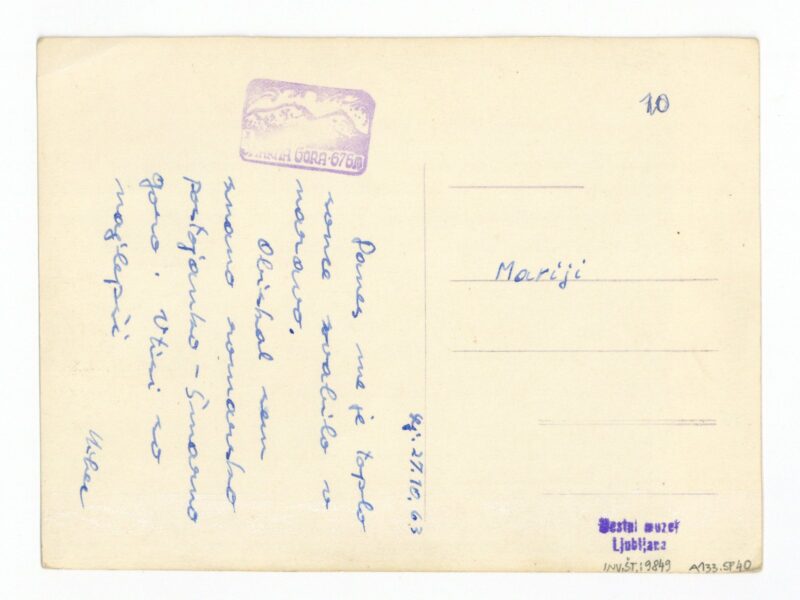 ŠMARNA GORA · 676m
10
Lj. 27.10.63
Danes me je toplo
sonce zvabilo v
naravo.
Obiskal sem
znano romarsko
postojanko - Šmarno
goro. Vtisi so
najlepši
Mariji
Mestni muzej
Ljubljana
INV.ŠT. 19849
A133.SP40